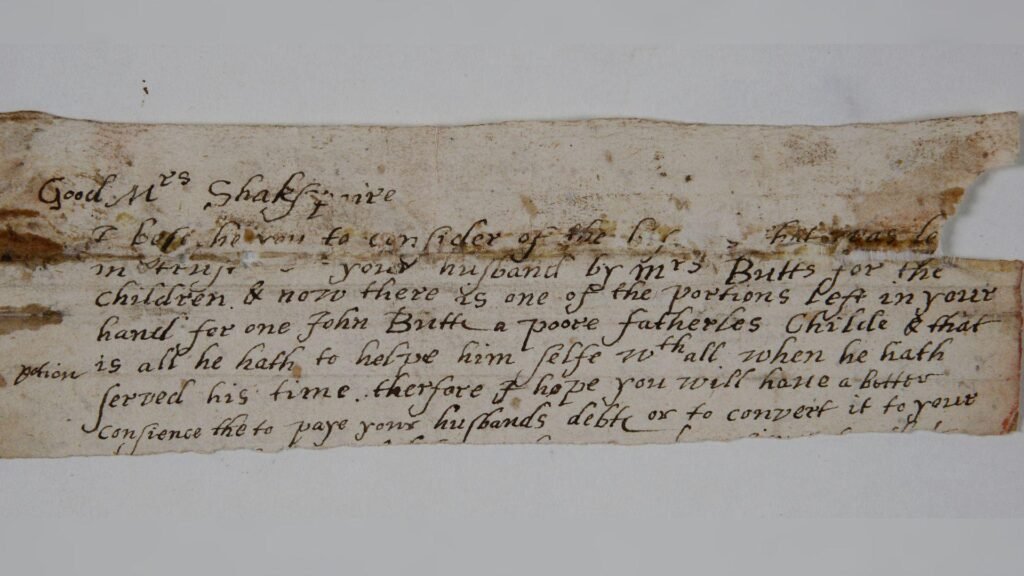 Good Mrs Shakspaire
I besече you to consider of the that was le
in trust your husband by Mrs Butts for the
Children & now there is one of the portions left in your
hand for one John Butte a poore fatherles Childe & that
potion is all he hath to helpe him selfe wth all when he hath
served his time. therfore I hope you will have a better
Consience the to paye your husbands debte or to convert it to your